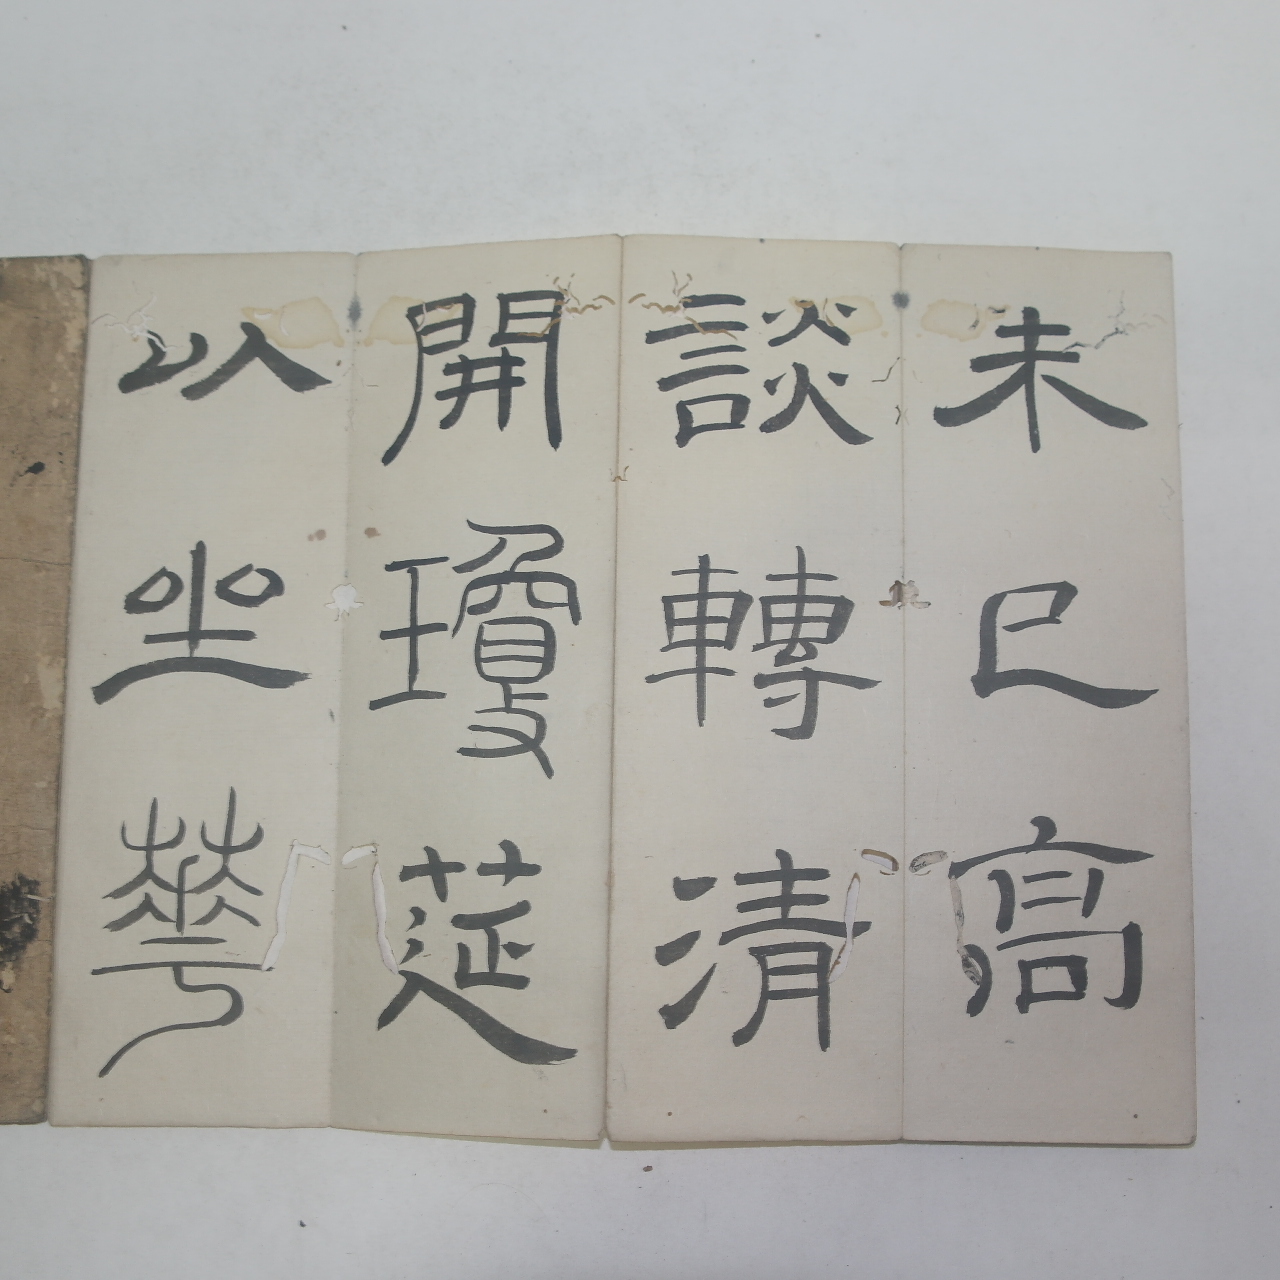 未已高
談轉清
開瓊筵
以坐華